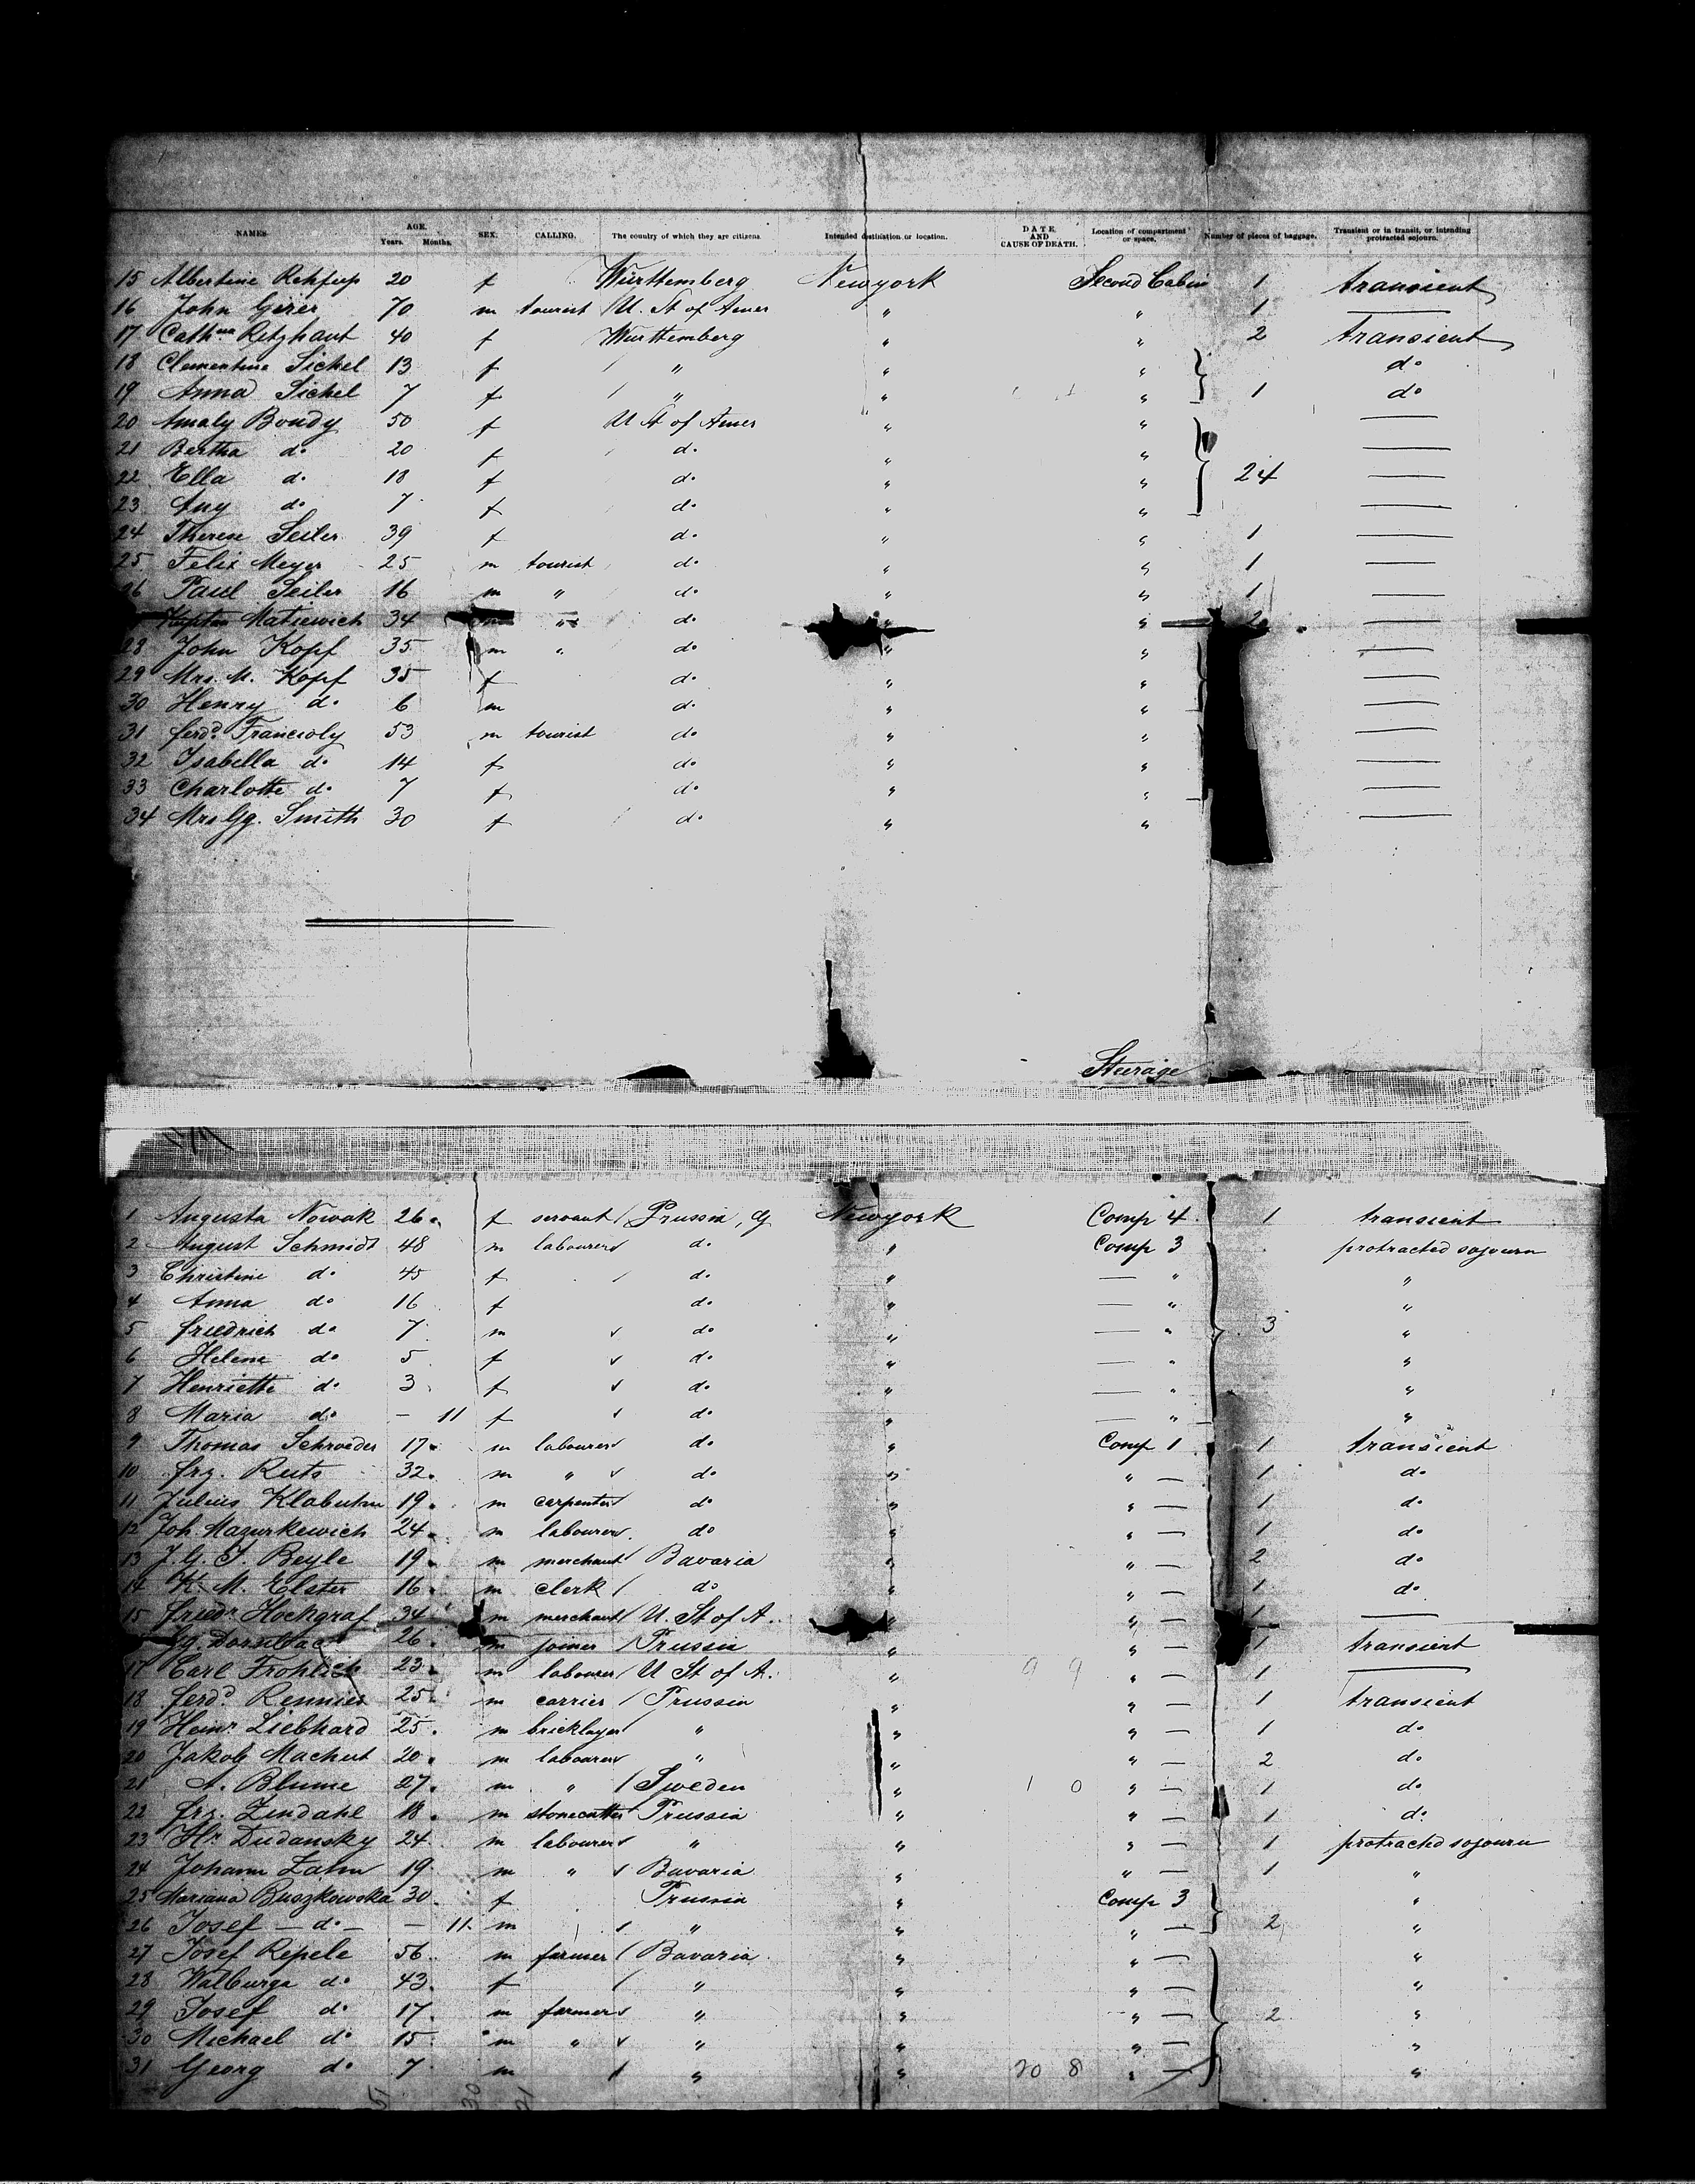 NAMES. AGE. Years. Months. SEX. CALLING. The country of which they are citizens. Intended destination or location. DATE AND CAUSE OF DEATH. Location of compartment or space. Number of pieces of baggage. Transient or in transit, or intending protracted sojourn.
15 Albertine 20 f Württemberg Newyork Second Cabin 1 transient
16 John Geser 70 m tourist U. St of Amer " " 1 —
17 Cath Retzhaut 40 f Württemberg " " 2 transient
18 Clementine Sickel 13 f " " " do
19 Anna Sickel 7 f " " " 1 do
20 Amaly Bondy 50 f U St of Amer " " —
21 Bertha do 20 f do " " —
22 Ella do 18 f do " " 24 —
23 Any do 7 f do " " —
24 Therese Seiler 39 f do " " 1 —
25 Felix Meyer 25 m tourist do " " 1 —
26 Paul Seiler 16 m " do " " 1 —
Matiewich 34 m " do " " 2 —
28 John Kopf 35 m " do " " —
29 Mrs. M. Kopf 35 f do " " —
30 Henry do 6 m do " " —
31 Ferd. Francioly 53 m tourist do " " —
32 Isabella do 14 f do " " —
33 Charlotte do 7 f do " " —
34 Mrs Gg. Smith 30 f do " " —
Steerage
1 Augusta Nowak 26 f servant Prussia, Newyork Comp 4 1 transient
2 August Schmidt 48 m labourer do " Comp 3 protracted sojourn
3 Christine do 45 f do " — " "
4 Anna do 16 f do " — " "
5 Friedrich do 7 m do " — " 3 "
6 Helene do 5 f do " — " "
7 Henriette do 3 f do " — " "
8 Maria do — 11 f do " — " "
9 Thomas Schroeder 17 m labourer do " Comp 1 1 transient
10 Frz. Ruts 32 m " do " " — 1 do
11 Julius 19 m carpenter do " " — 1 do
12 Joh. Mazurkewich 24 m labourer do " " — 1 do
13 J. G. J. Beyle 19 m merchant Bavaria " " — 2 do
14 K. M. Elster 16 m clerk do " " — 1 do
15 Friedr. Hochgraf 34 m merchant U. St of A. " " — 1 —
26 m joiner Prussia " " — 1 transient
17 Carl Frohlich 23 m labourer U St of A. " 9 9 " — 1 —
18 Ferd. Rennier 25 m carrier Prussia " " — 1 transient
19 Heinr. Liebhard 25 m bricklayer " " " — 1 do
20 Jakob Machut 20 m labourer " " " — 2 do
21 A. Blume 27 m " Sweden " 1 0 " — 1 do
22 Frz. Lindahl 18 m stonecutter Prussia " " — 1 do
23 Hr. Dudansky 24 m labourer " " " — 1 protracted sojourn
24 Johann Zahn 19 m " Bavaria " " — 1 "
25 Mariana Buszkowska 30 f Prussia " Comp 3 "
26 Josef — do — — 11 m " " " — 2 "
27 Josef Repele 56 m farmer Bavaria " " — "
28 Walburga do 43 f " " " — "
29 Josef do 17 m farmer " " " — 2 "
30 Michael do 15 m " " " " — "
31 Georg do 7 m " " 20 8 " — "